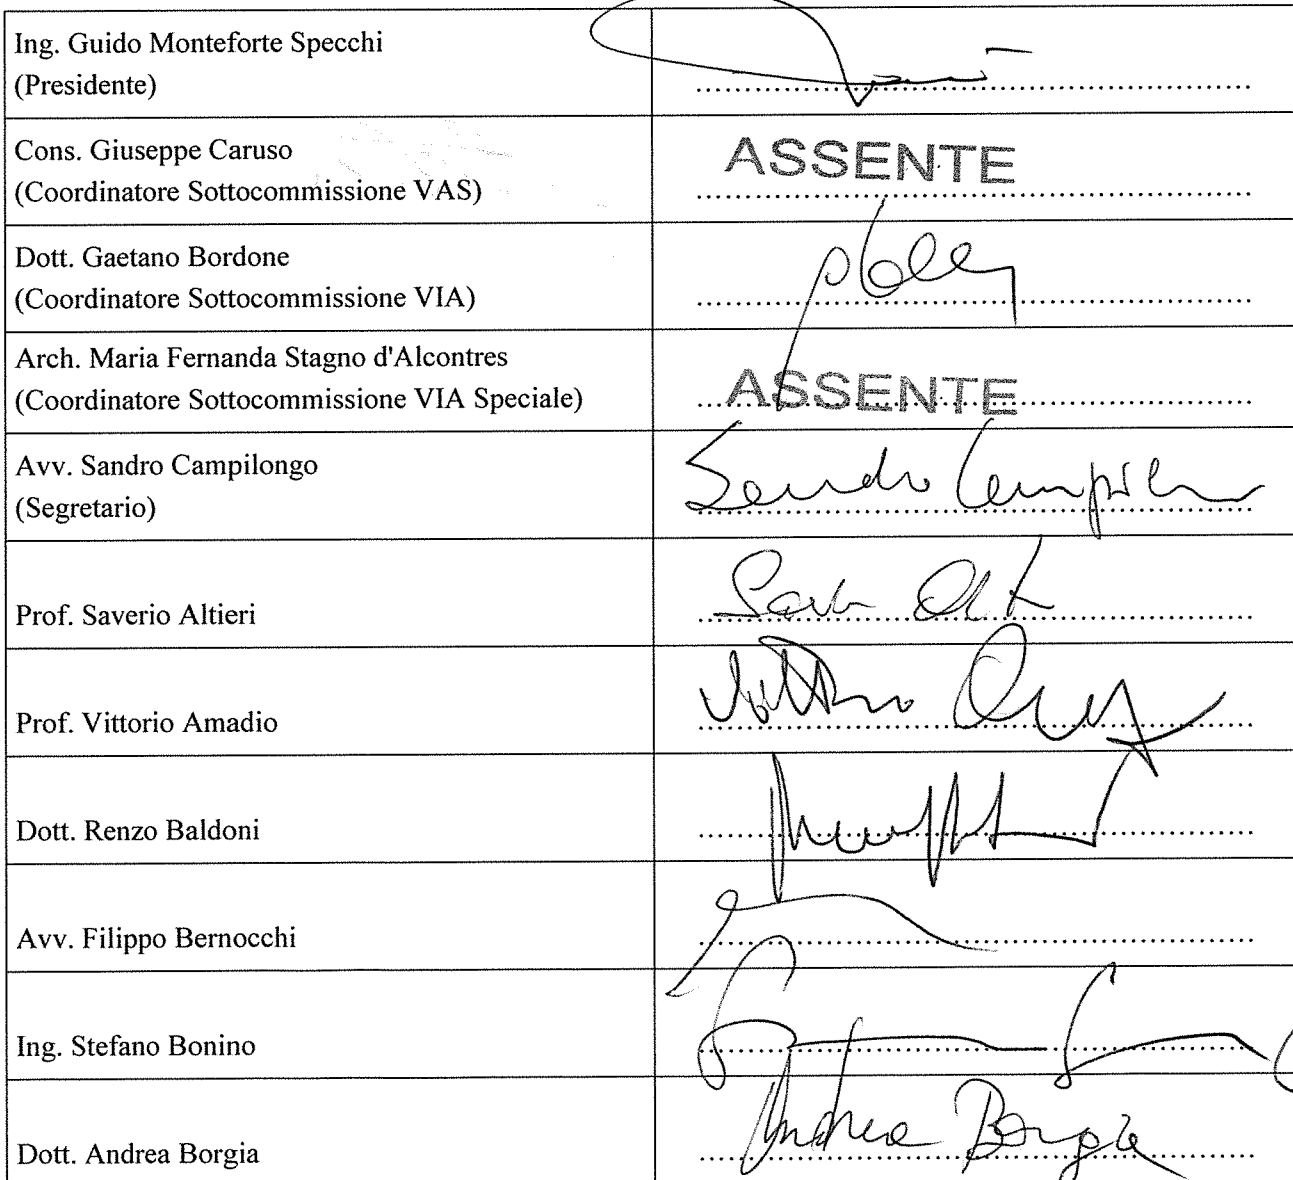 Ing. Guido Monteforte Specchi
(Presidente)
Cons. Giuseppe Caruso
(Coordinatore Sottocommissione VAS)
ASSENTE
Dott. Gaetano Bordone
(Coordinatore Sottocommissione VIA)
Arch. Maria Fernanda Stagno d'Alcontres
(Coordinatore Sottocommissione VIA Speciale)
ASSENTE
Avv. Sandro Campilongo
(Segretario)
Sandro
Prof. Saverio Altieri
Prof. Vittorio Amadio
Dott. Renzo Baldoni
Avv. Filippo Bernocchi
Ing. Stefano Bonino
Dott. Andrea Borgia
Andrea Borgia